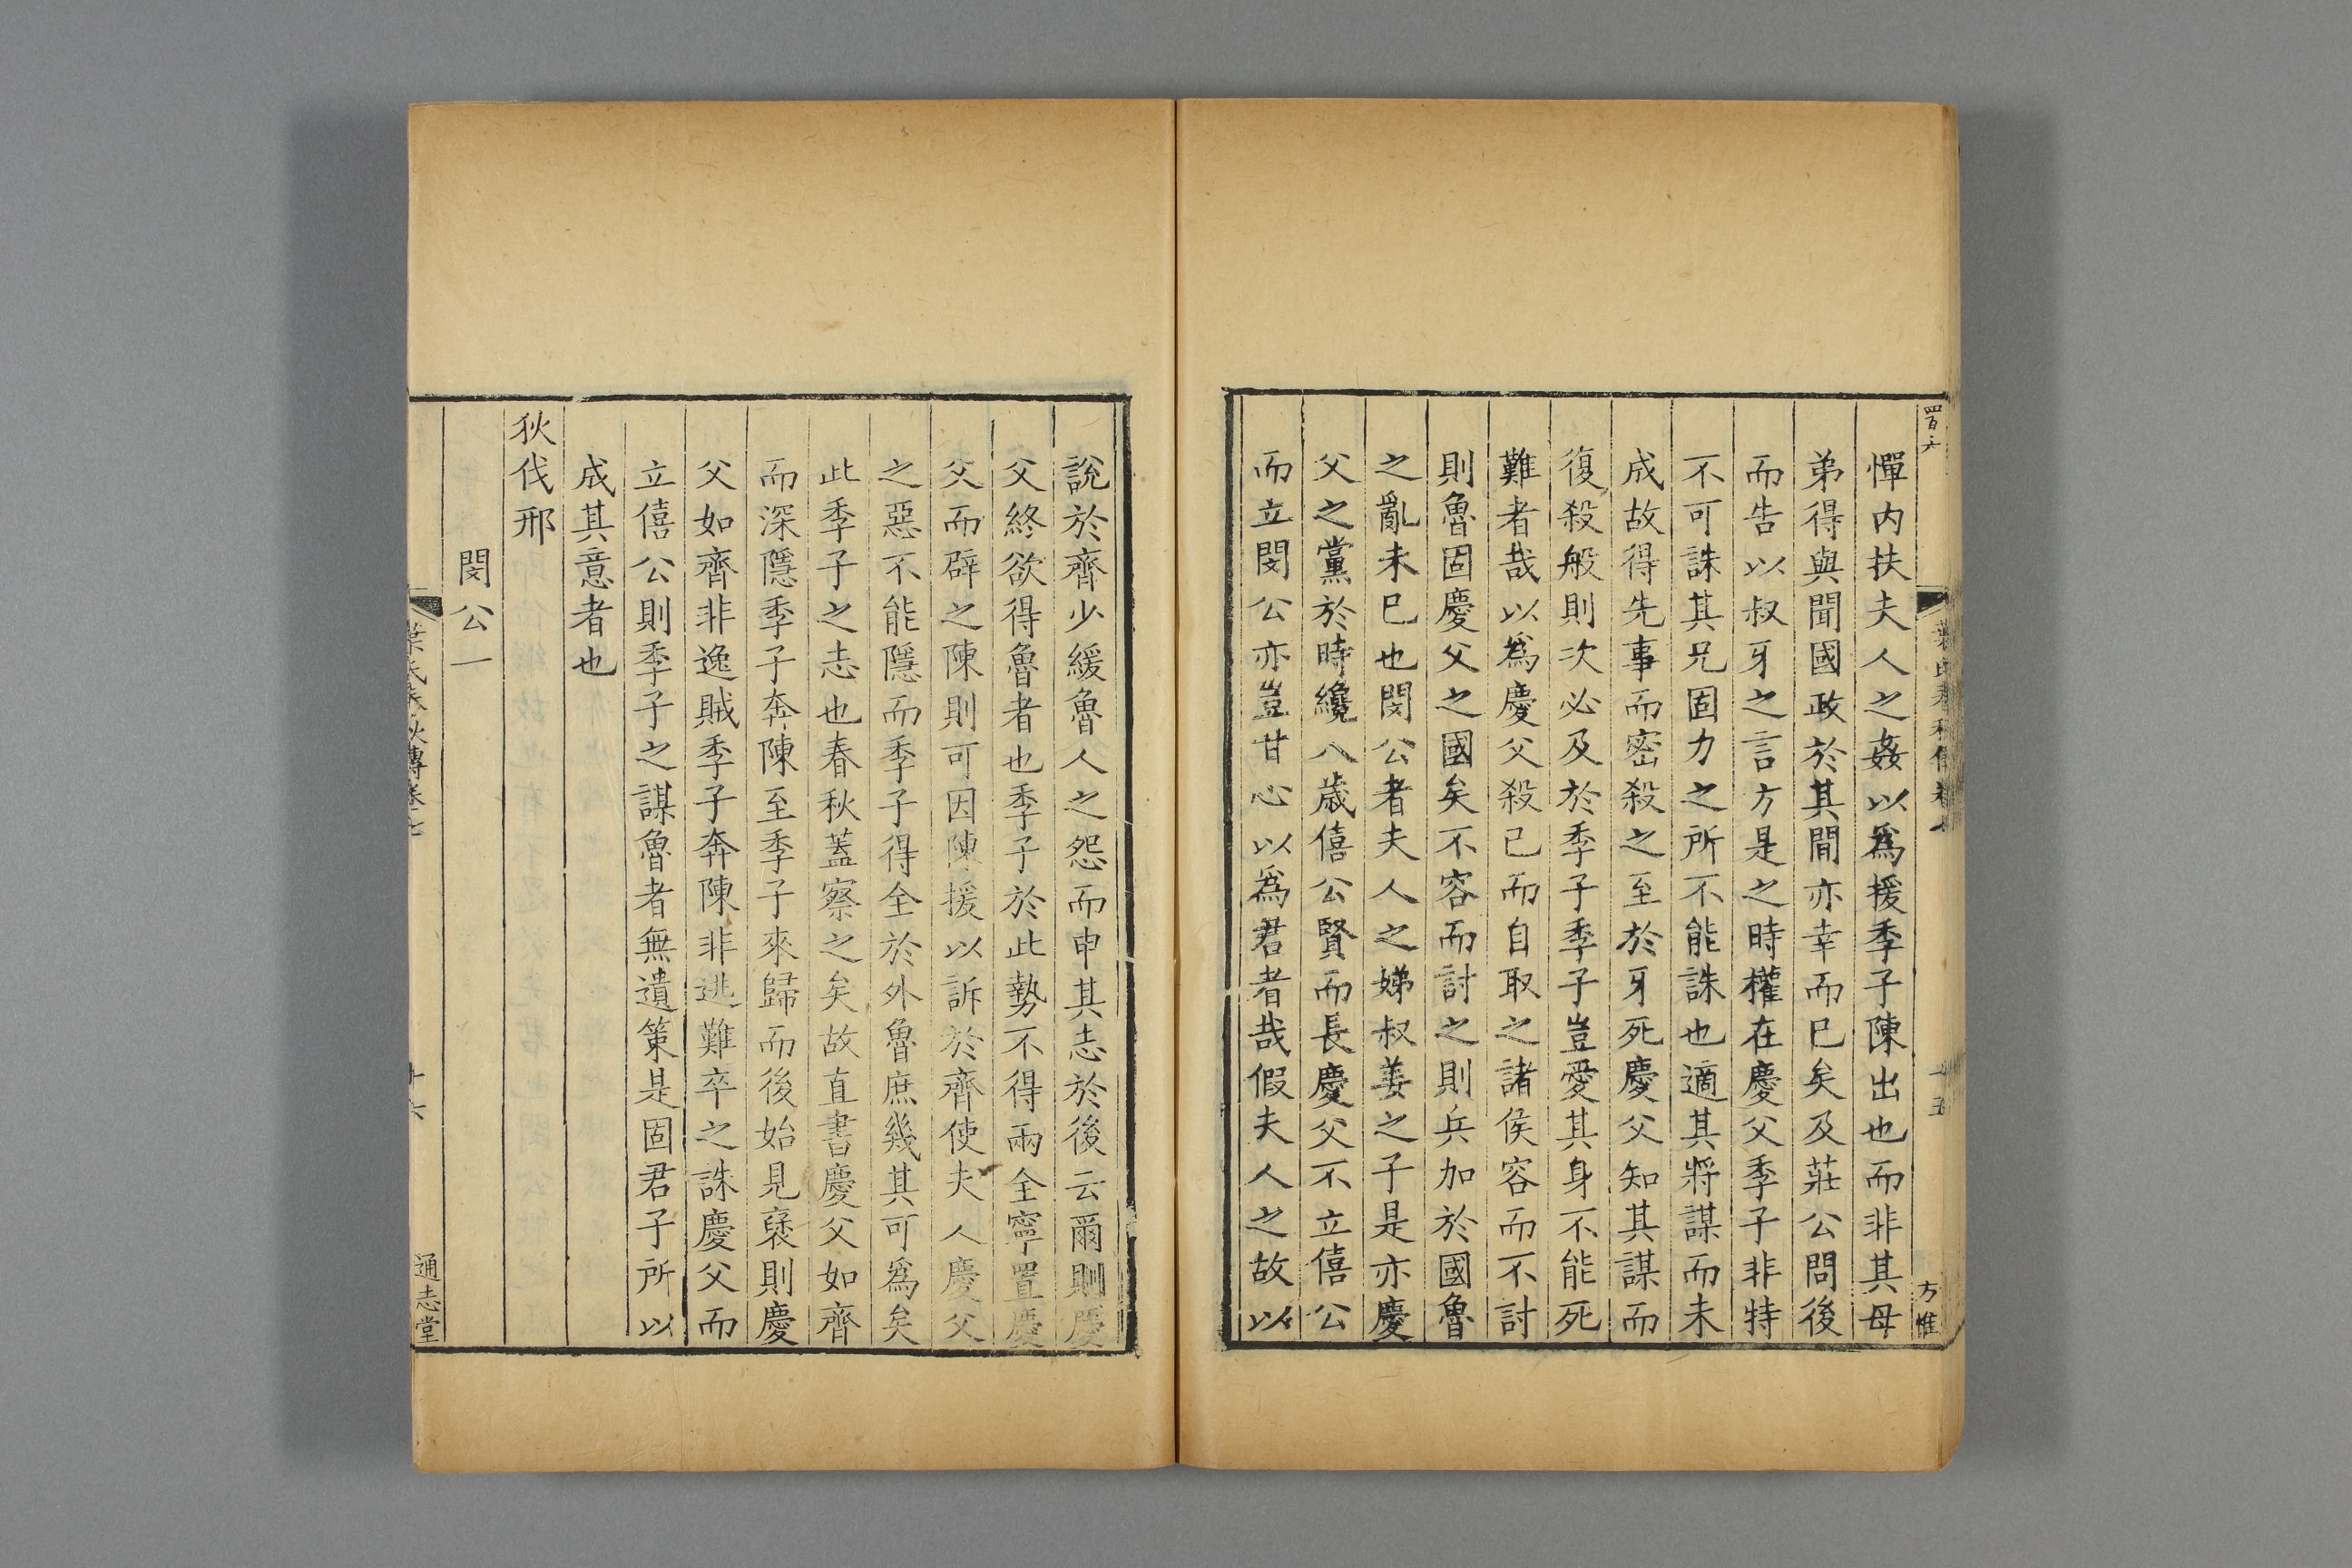 憚内扶夫人之姦以爲援季子陳出也而非其母
弟得與聞國政於其間亦幸而已矣及莊公問後
而告以叔牙之言方是之時權在慶父季子非特
不可誅其兄固力之所不能誅也適其將謀而未
成故得先事而密殺之至於牙死慶父知其謀而
復殺般則次必及於季子季子豈愛其身不能死
難者哉以爲慶父殺已而自取之諸侯容而不討
則魯固慶父之國矣不容而討之則兵加於國魯
之亂未巳也閔公者夫人之娣叔姜之子是亦慶
父之黨於時纔八歲僖公賢而長慶父不立僖公
而立閔公亦豈甘心以爲君者哉假夫人之故以
說於齊少緩魯人之怨而申其志於後云爾則慶
父終欲得魯者也季子於此勢不得兩全寧置慶
父而辟之陳則可因陳援以訴於齊使夫人慶父
之惡不能隱而季子得全於外魯庶幾其可爲矣
此季子之志也春秋蓋察之矣故直書慶父如齊
而深隱季子奔陳至季子來歸而後始見襃則慶
父如齊非逸賊季子奔陳非逃難卒之誅慶父而
立僖公則季子之謀魯者無遺策是固君子所以
成其意者也
狄伐邢
閔公一
葉氏春秋傳卷七
十六
通志堂